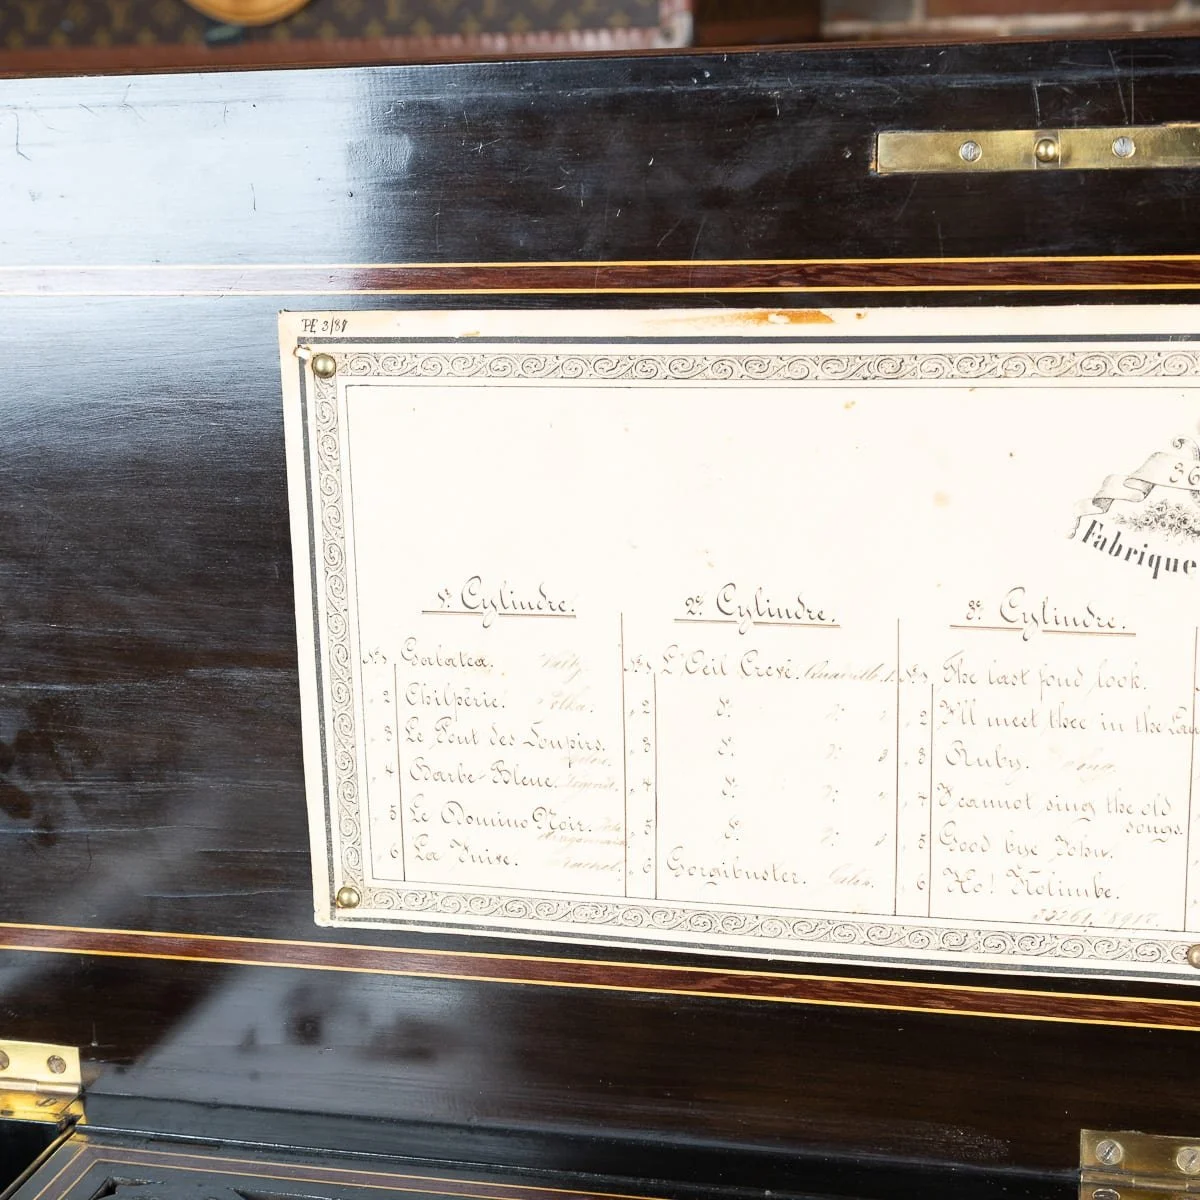 PE 3/87
36
Fabrique
1r. Cylindre.
No. 1 Galatea. Valse.
" 2 Chilpéric. Polka.
" 3 Le Pont des Soupirs.
" 4 Barbe-Bleue. Légende.
" 5 Le Domino Noir.
" 6 La Juive. Rachel.
2e. Cylindre.
No. 1 L'Oeil Crevé. Quadrille 1.
" 2 do. do. 2
" 3 do. do. 3
" 4 do. do. 4
" 5 do. do. 5
" 6 Gorgibuster.
3e. Cylindre.
No. 1 The last fond look.
" 2 I'll meet thee in the Lane
" 3 Ruby. Song.
" 4 I cannot sing the old
songs.
" 5 Good bye John.
" 6 Ho! Kolimbe.